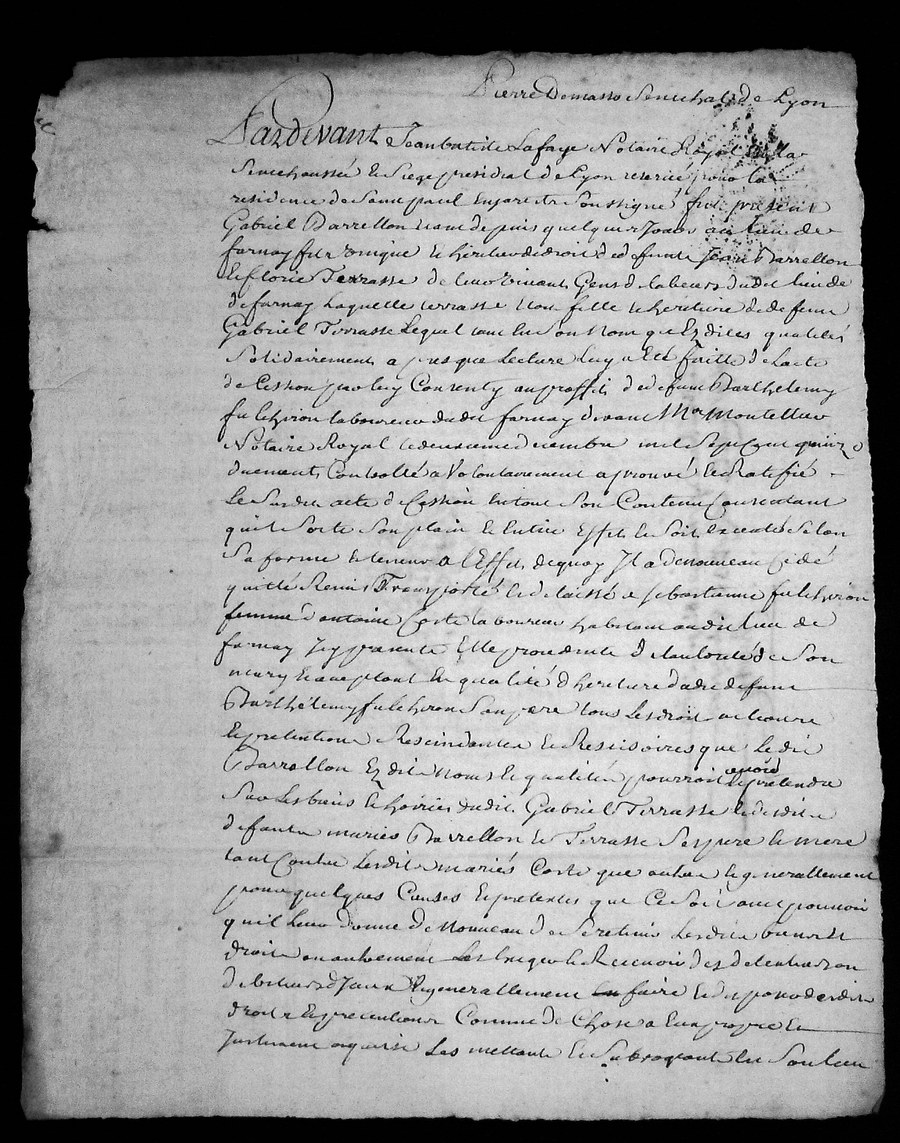 Pierre Demasso Senechal de Lyon
Pardevant Jean batiste Lafaye Notaire Royal en la
Senechaussée & Siege presidial de Lyon reservé pour la
residence de Saint paul en jarest Soussigné fut present
Gabriel Barrellon depuis quelques Jours au lieu de
farnay fils & unique & heritier de droit de defunt Jean Barrellon
& florie Terrasse de leur vivant Gens de labeurs dudit lieu de
de farnay laquelle terrasse fille & heritiere de defunt
Gabriel Terrasse Lequel tant en Son Nom que Ezdites qualités
Solidairement apres que Lecture luy a Eté faitte de lacte
de Cession par luy Consenty au proffit de defunt Barthelemy
fulchiron laboureur dudit farnay devant Mre Montellier
Notaire Royal le deuxieme decembre mil Sept Cent quinze
duement Controllé a Volontairement aprouvé & Ratifié
Le Susdit acte de Cession en tout Son Contenu Consentant
quil Sorte Son plain & Entier Effet & Soit executé Selon
Sa forme & teneur a l'Effet dequoy Il a de nouveau Cédé
quitté Remis Transporté & delaissé a Sebastienne fulchiron
femme d'antoine Coste laboureur habitant audit lieu de
farnay Icy presente Elle procedente de lautorité de Son
mary & acceptant En qualité d'heritiere dudit defunt
Barthélemy fulchiron Son pere tous Les droits actions
& pretentions Rescindantes & Rescisoires que Le dit
Barrellon Ezdits Noms & qualités pourroit avoir & pretendre
Sur Les biens & hoiries dudit Gabriel Terrasse & desdits
defants mariés Barrellon & Terrasse Ses pere & mere
tant Contre Lesdits mariés Coste que autres & generallement
pour quelques Causes & pretextes que Ce Soit avec pouvoir
quil Leur donne de Nouveau de Se retenir Lesdits biens &
droits autrement Les Exiger & Recevoir des detenteurs ou
debiteurs d'Iceux & generallement en faire & disposer desdits
droits & pretentions Comme de Chose a Eux propre &
Justement acquise Les mettant & Subrogeant en Son lieu